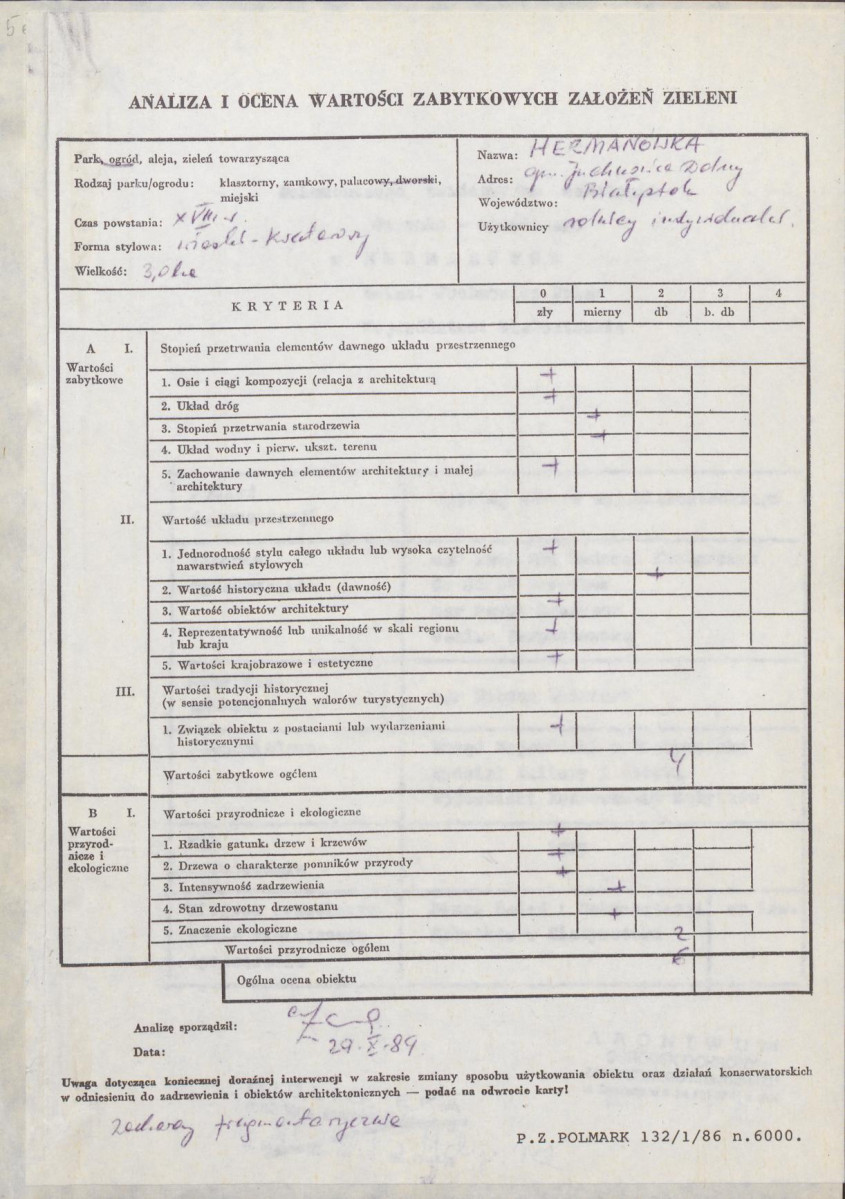 5
ANALIZA I OCENA WARTOŚCI ZABYTKOWYCH ZAŁOŻEŃ ZIELENI
Park, ogród, aleja, zieleń towarzysząca
Rodzaj parku/ogrodu: klasztorny, zamkowy, pałacowy, dworski,
miejski
Czas powstania: XVIII w.
Forma stylowa:
Wielkość: 3,0 ha
Nazwa: HERMANÓWKA
Adres: gm. Juchnowiec Dolny
Województwo: Białystok
Użytkownicy rolnicy indywidual.
KRYTERIA
0 1 2 3 4
zły mierny db b. db
A I. Stopień przetrwania elementów dawnego układu przestrzennego
Wartości
zabytkowe
1. Osie i ciągi kompozycji (relacja z architekturą +
2. Układ dróg +
3. Stopień przetrwania starodrzewia +
4. Układ wodny i pierw. ukszt. terenu +
5. Zachowanie dawnych elementów architektury i małej +
architektury
II. Wartość układu przestrzennego
1. Jednorodność stylu całego układu lub wysoka czytelność +
nawarstwień stylowych
2. Wartość historyczna układu (dawność) +
3. Wartość obiektów architektury +
4. Reprezentatywność lub unikalność w skali regionu +
lub kraju
5. Wartości krajobrazowe i estetyczne +
III. Wartości tradycji historycznej
(w sensie potencjonalnych walorów turystycznych)
1. Związek obiektu z postaciami lub wydarzeniami +
historycznymi
Wartości zabytkowe ogółem 4
B I. Wartości przyrodnicze i ekologiczne
Wartości
przyrod-
nicze i
ekologiczne
1. Rzadkie gatunki drzew i krzewów +
2. Drzewa o charakterze pomników przyrody +
3. Intensywność zadrzewienia +
4. Stan zdrowotny drzewostanu +
5. Znaczenie ekologiczne +
Wartości przyrodnicze ogółem 2
Ogólna ocena obiektu 6
Analizę sporządził:
Data: 29.X.89
Uwaga dotycząca koniecznej doraźnej interwencji w zakresie zmiany sposobu użytkowania obiektu oraz działań konserwatorskich
w odniesieniu do zadrzewienia i obiektów architektonicznych — podać na odwrocie karty!
fragmentarycznie
P.Z.POLMARK 132/1/86 n.6000.